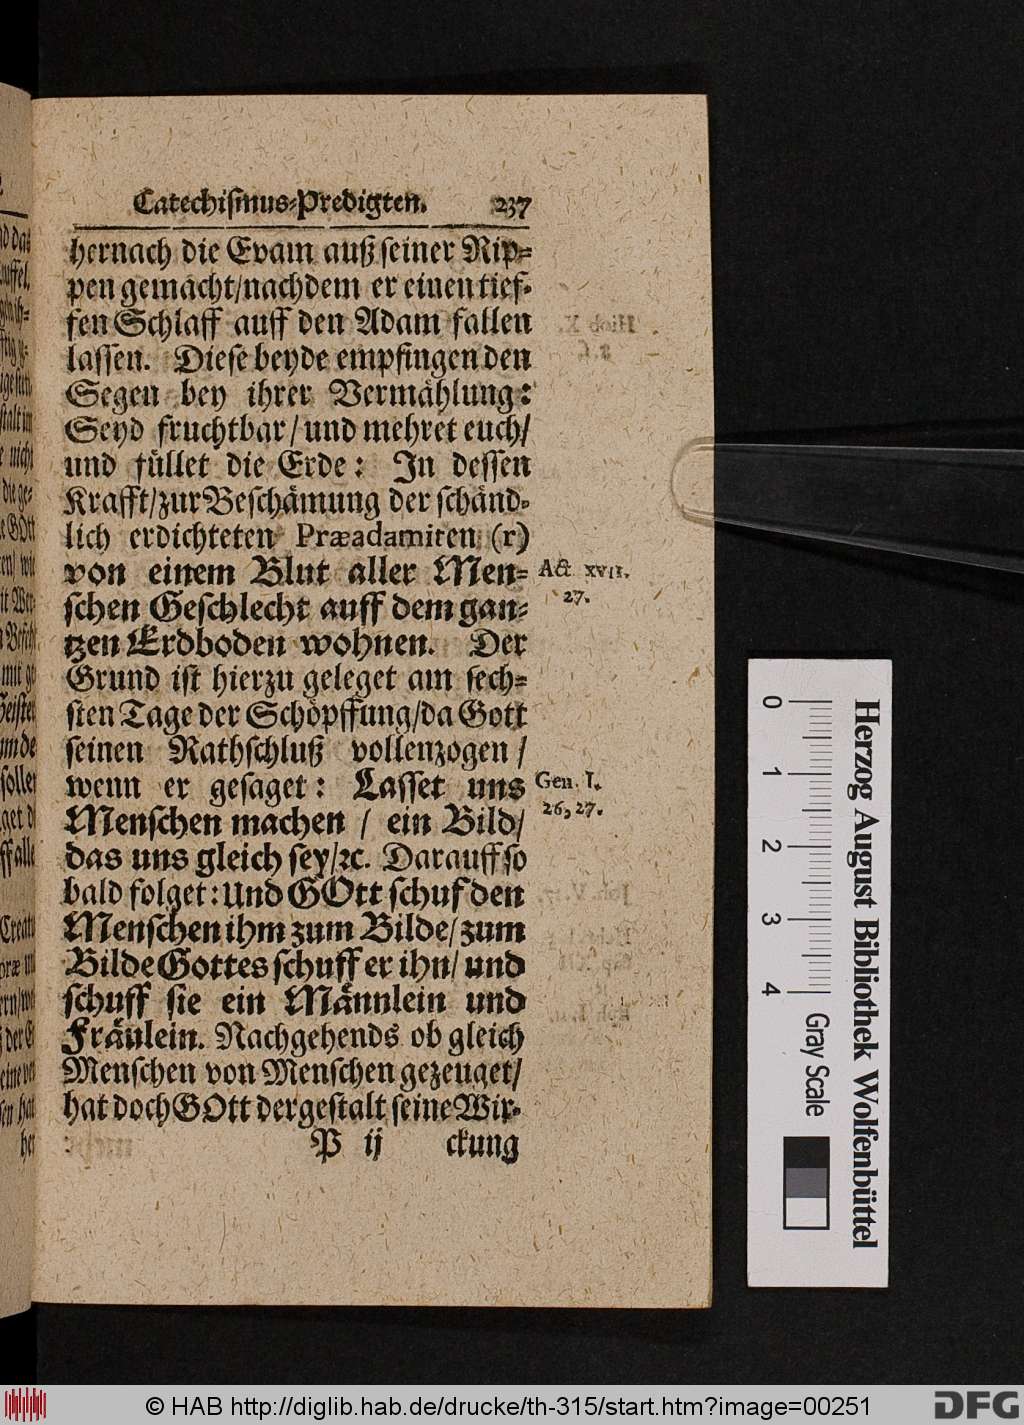 Catechiſmus-Predigten. 237
hernach die Evam auß ſeiner Rip-
pen gemacht/nachdem er einen tief-
fen Schlaff auff den Adam fallen
laſſen. Dieſe beyde empfingen den
Segen bey ihrer Vermählung:
Seyd fruchtbar/ und mehret euch/
und füllet die Erde: In deſſen
Krafft/zur Beſchämung der ſchänd-
lich erdichteten Præadamiten (r)
von einem Blut aller Men-
ſchen Geſchlecht auff dem gan-
tzen Erdboden wohnen. Der
Grund iſt hierzu geleget am ſech-
ſten Tage der Schöpffung/da Gott
ſeinen Rathſchluß vollenzogen /
wenn er geſaget: Laſſet uns
Menſchen machen / ein Bild/
das uns gleich ſey/ꝛc. Darauff ſo
bald folget: Und GOtt ſchuf den
Menſchen ihm zum Bilde/ zum
Bilde Gottes ſchuff er ihn/ und
ſchuff ſie ein Männlein und
Fräulein. Nachgehends ob gleich
Menſchen von Menſchen gezeuget/
hat doch GOtt dergeſtalt ſeine Wir-
P ij ckung
Act. XVII.
27.
Gen. I.
26, 27.
Herzog August Bibliothek Wolfenbüttel
0 1 2 3 4 Gray Scale
© HAB http://diglib.hab.de/drucke/th-315/start.htm?image=00251
DFG